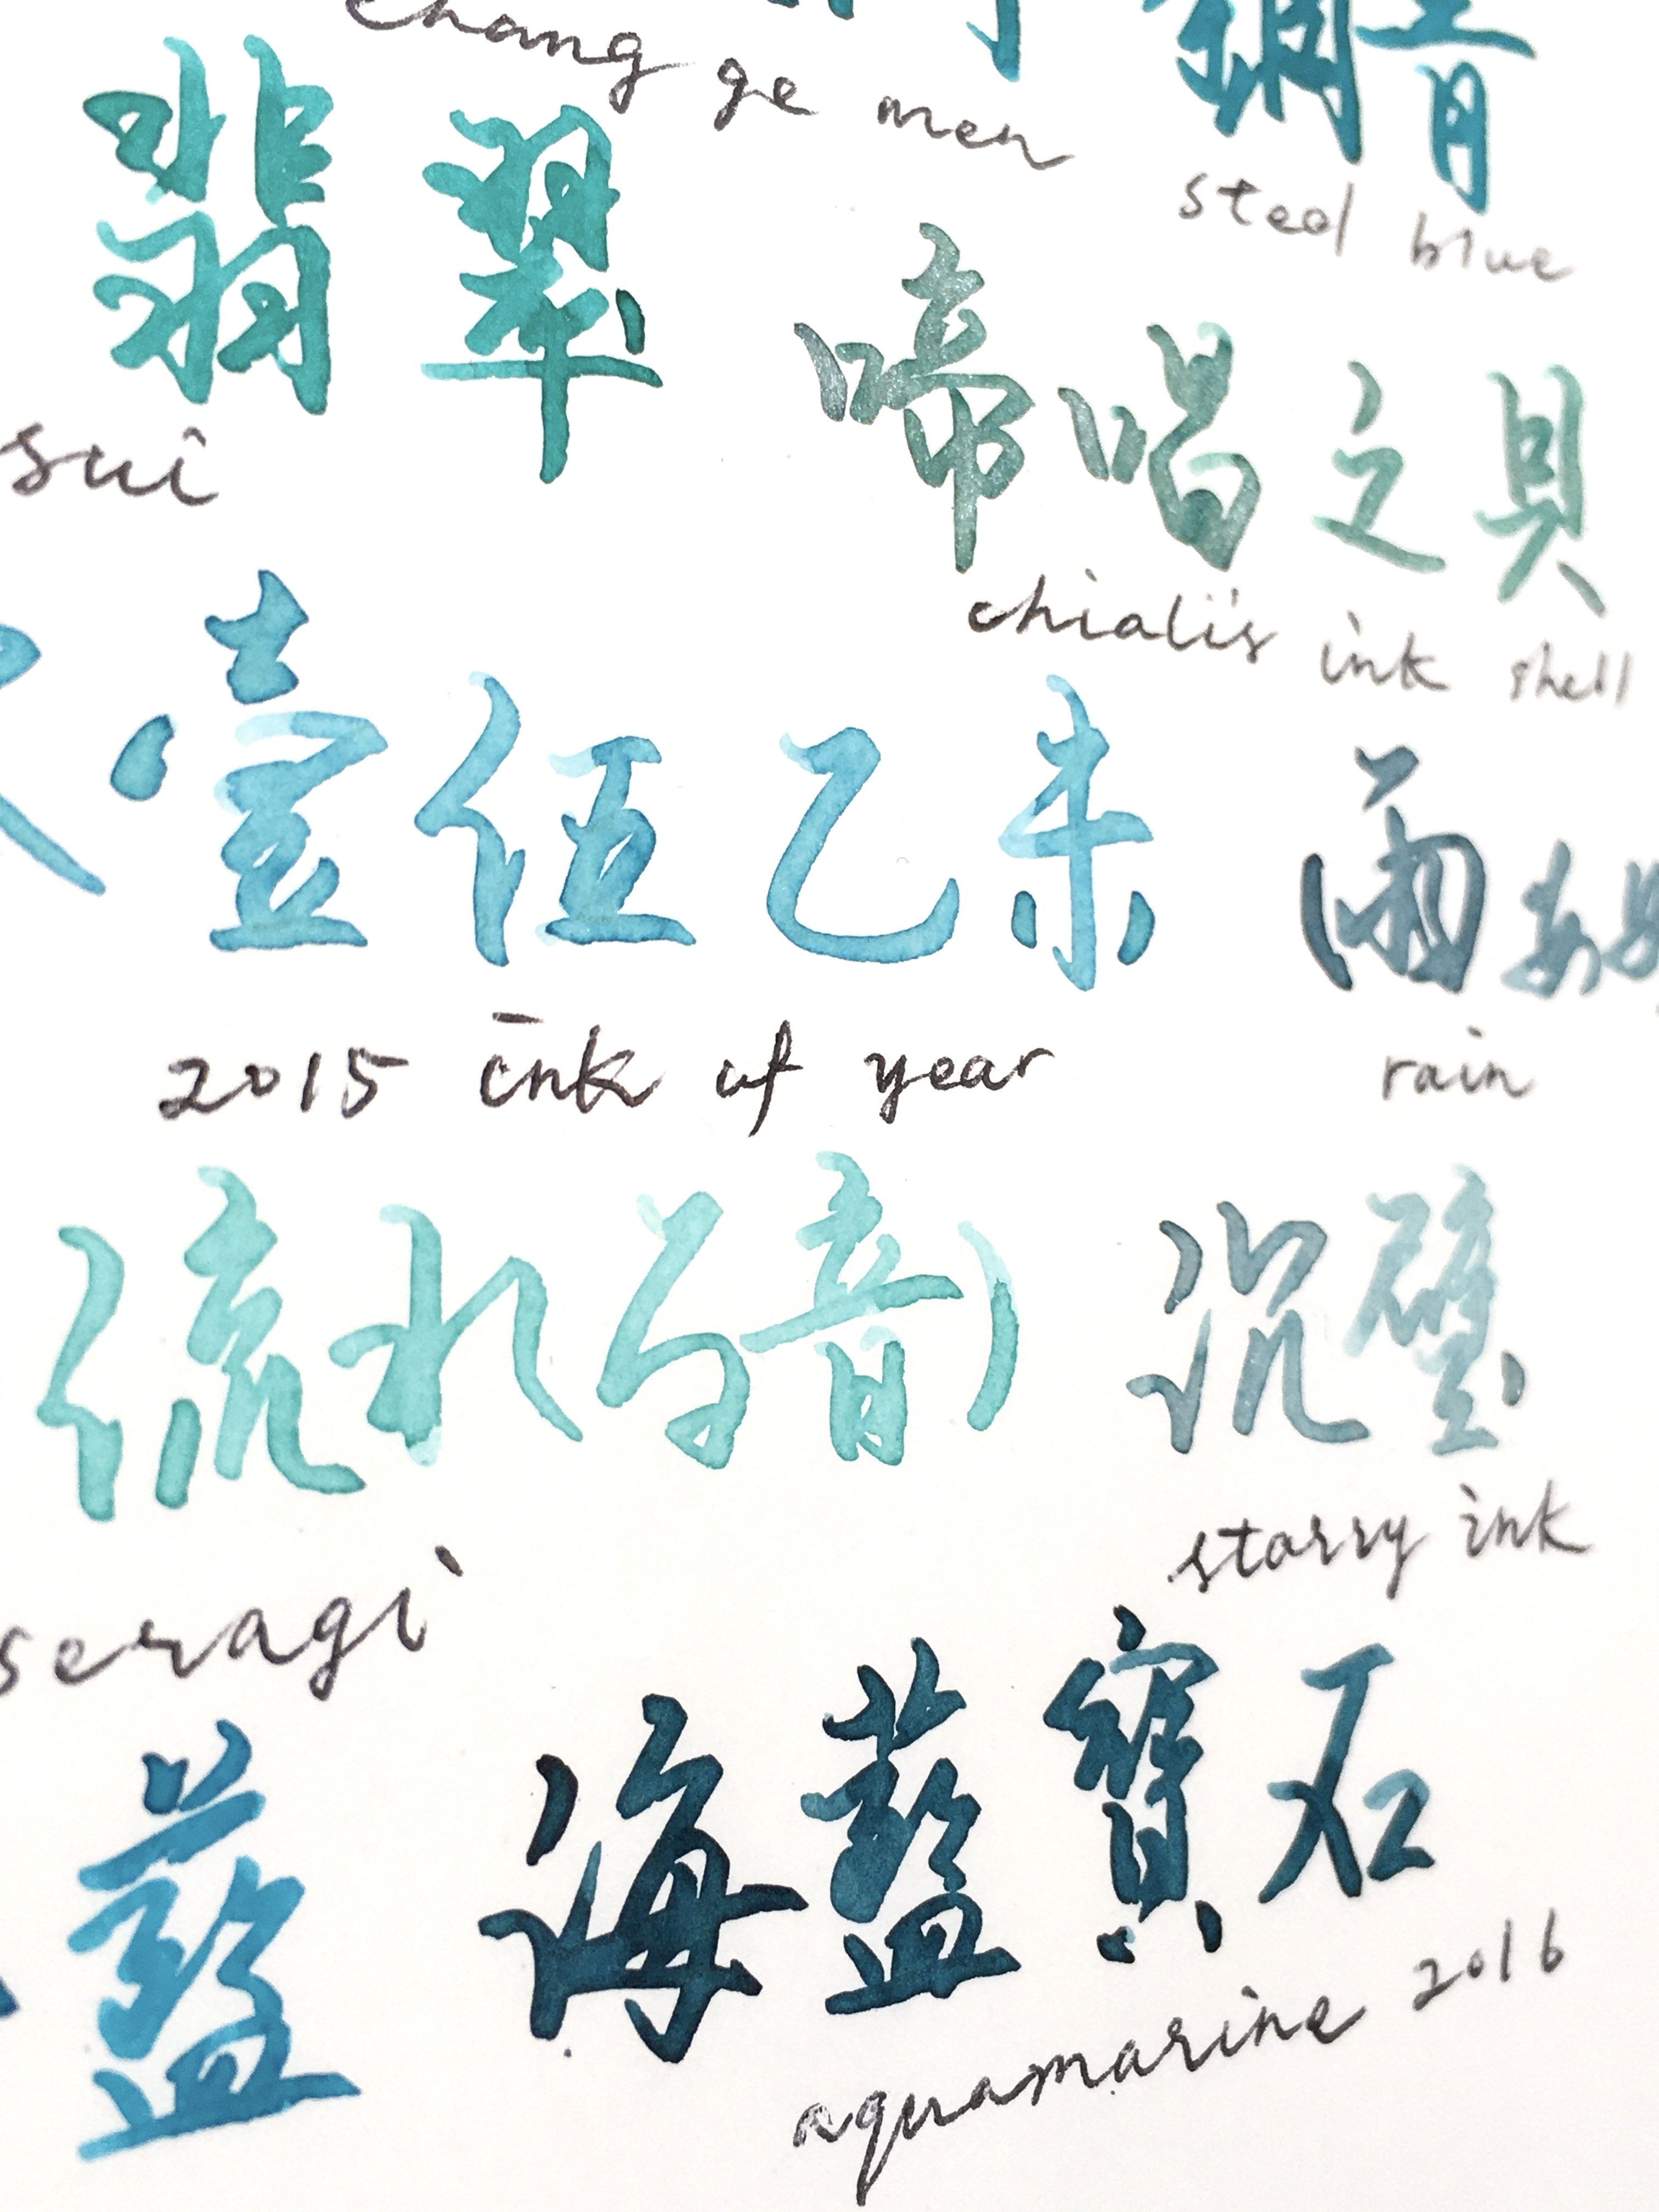 chang ge men
鋼青
steel blue
翡翠
sui
啼唱之貝
chiali's ink shell
壹伍乙未
2015 ink of year
雨
rain
流れる音)
seragi
沉璧
starry ink
藍
海藍寶石
aquamarine 2016